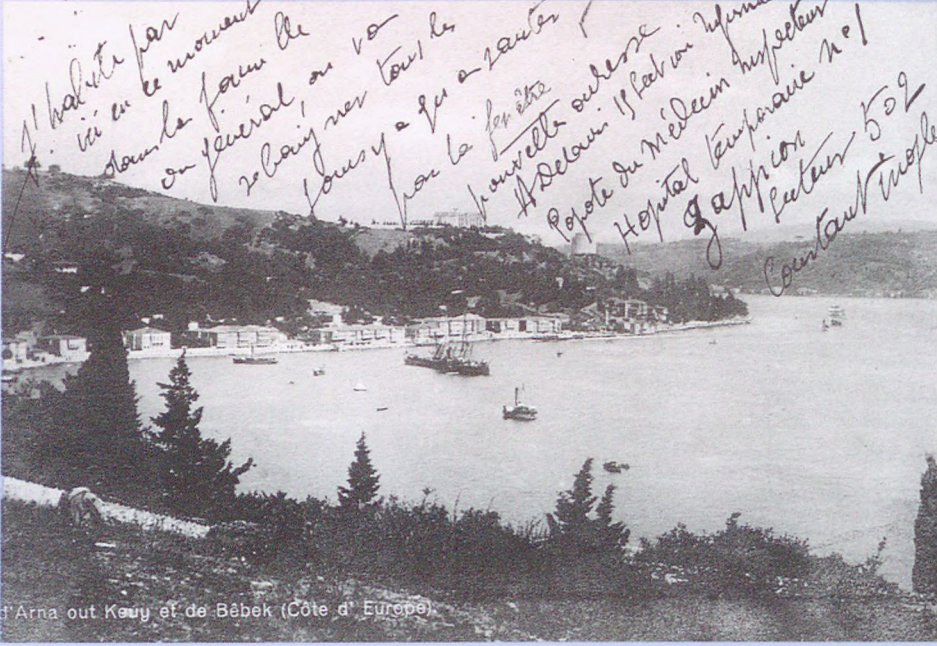 J'habite par
ici en ce moment
dans la
en général, on va
se baigner tous les
jours, a qu'a sauter
par la fenêtre
A Delaris 15 Section
Popote du Médecin Inspecteur
Hopital temporaire nº1
Zappion
Secteur 502
Constantinople
l'Arna out Keuy et de Bêbek (Côte d' Europe).